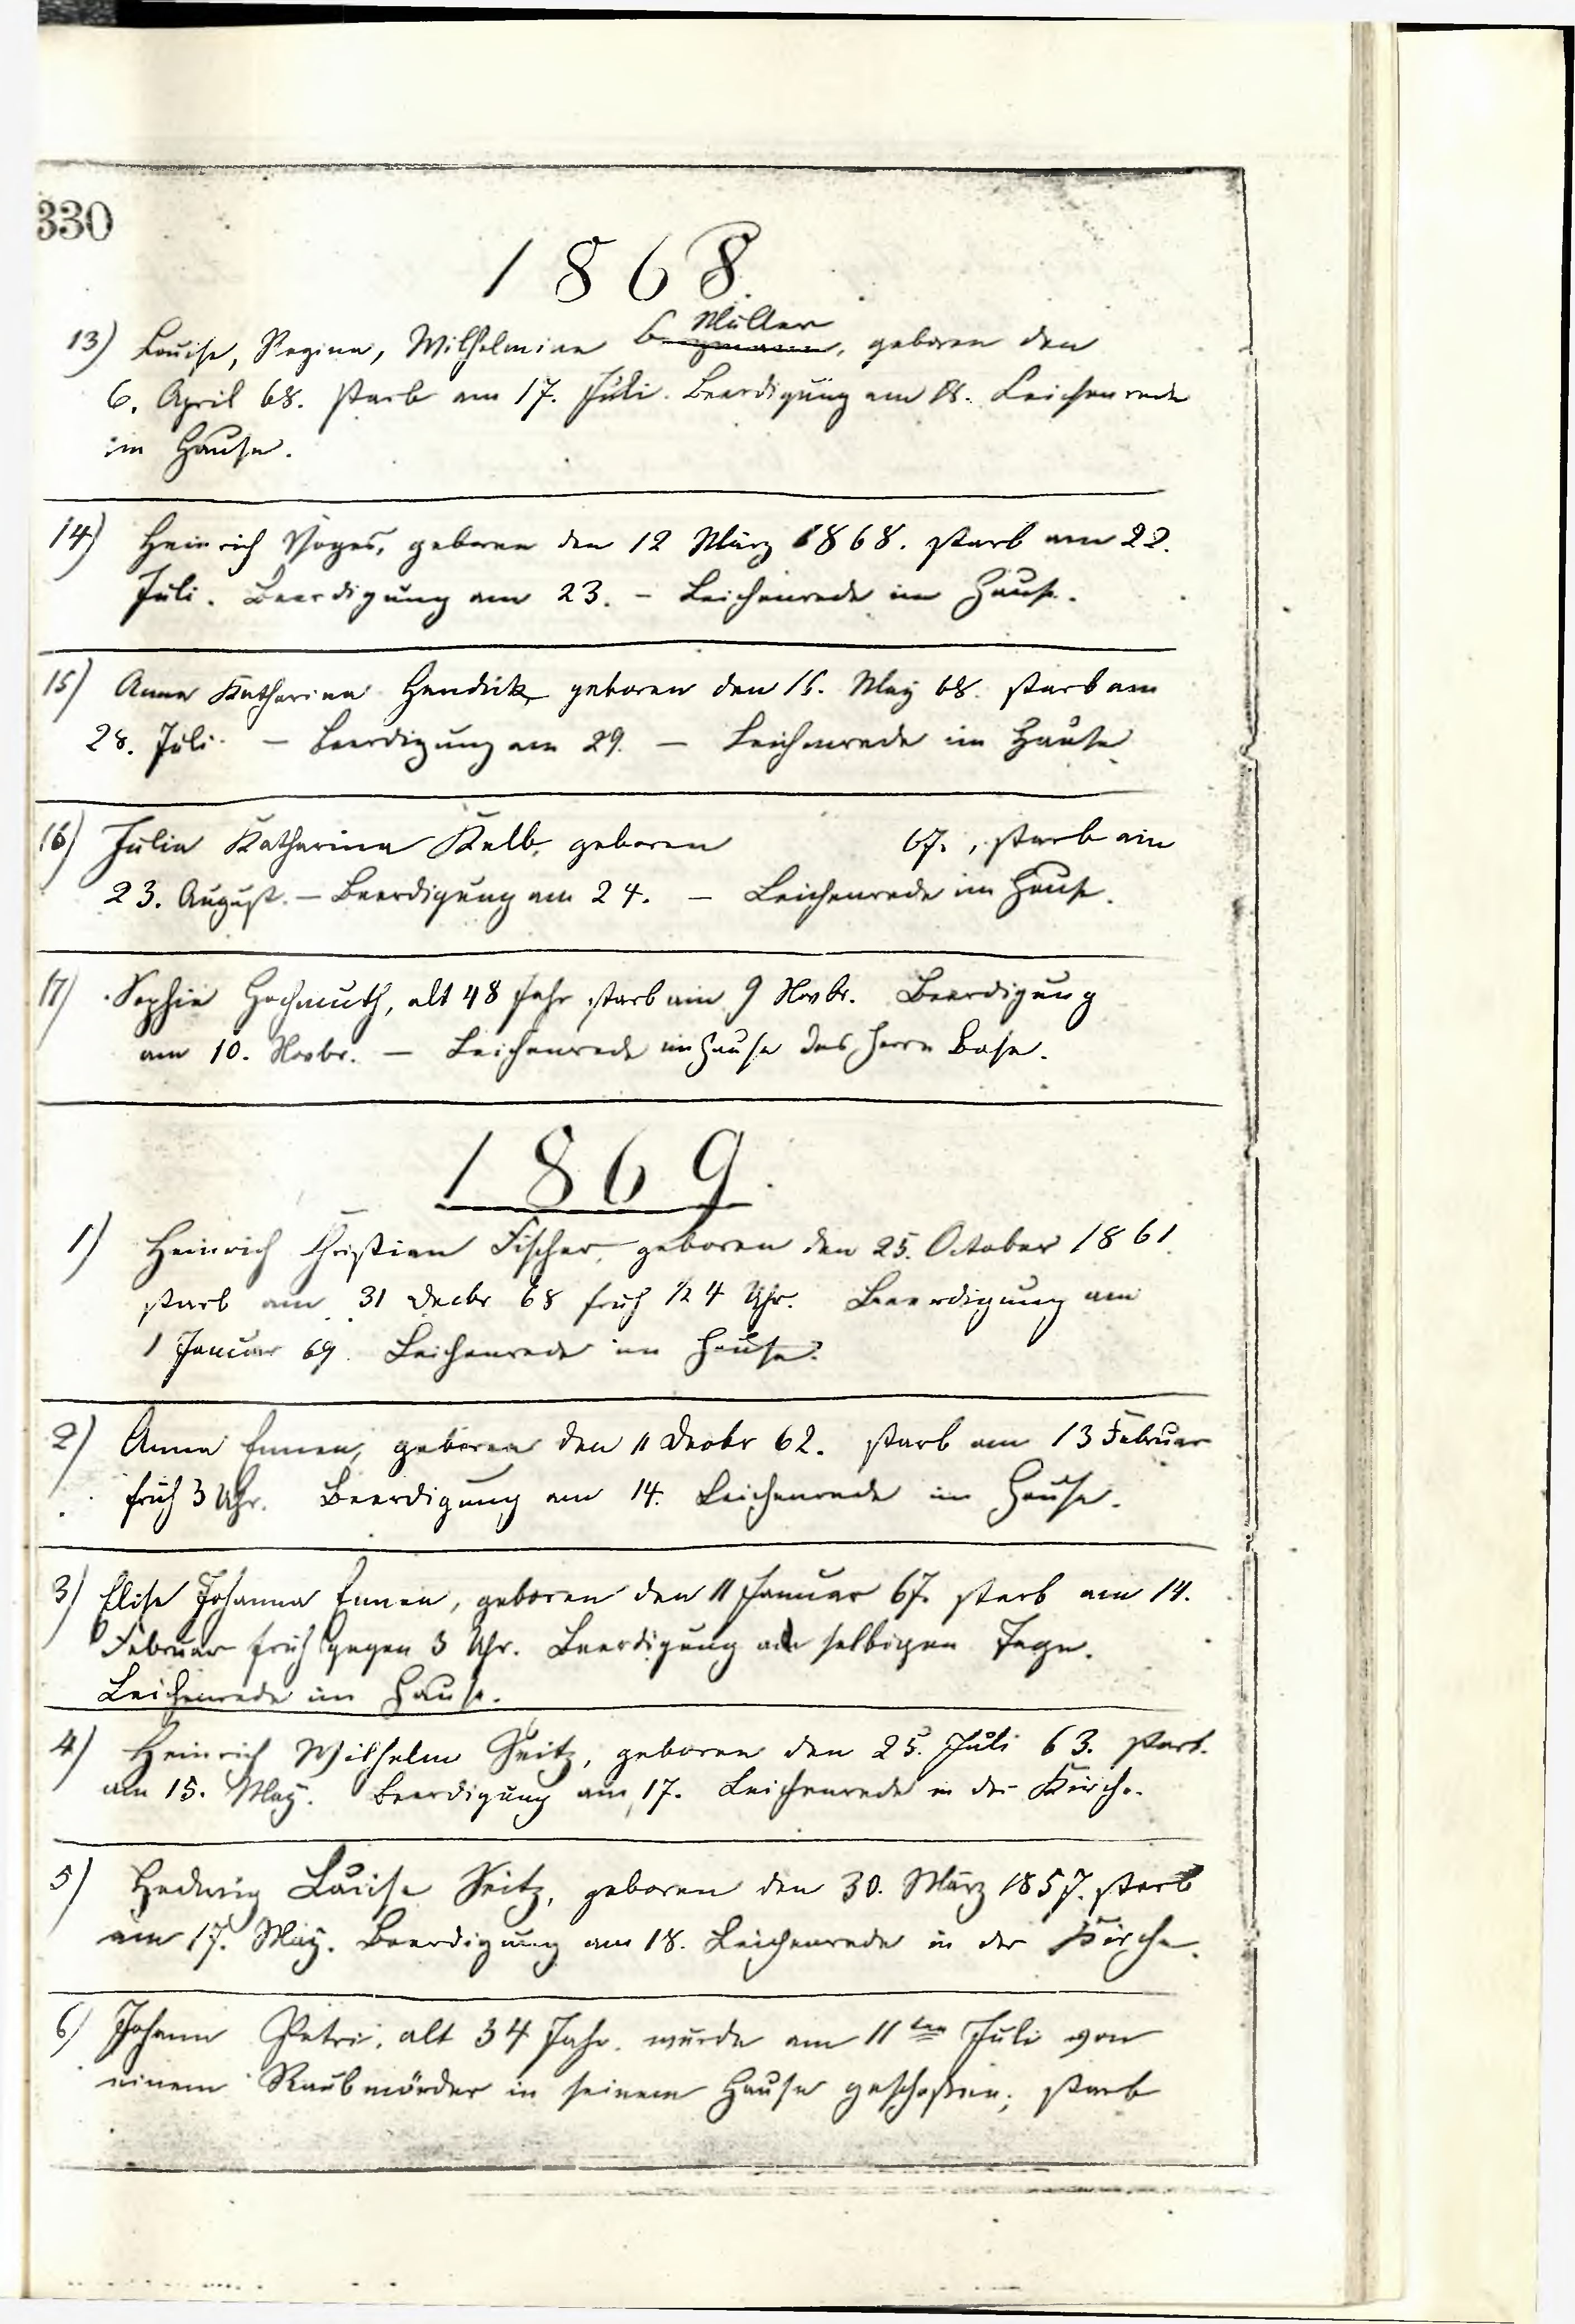 330
1868.
Müller
13) Louise, Regina, Wilhelmine geboren den
6. April 68. starb am 17. Juli. Beerdigung am 18. Leichenrede
im Hause.
14) Heinrich Voges, geboren den 12 März 1868. starb am 22.
Juli. Beerdigung am 23. – Leichenrede im Hause.
15) Anna Katharina Hendick geboren den May 68. starb am
28. Juli. – Beerdigung am 29. – Leichenrede im Hause.
16) Julia Katharina Kalb, geboren 67., starb am
23. August. – Beerdigung am 24. – Leichenrede im Hause.
17) Sophie Hochmuth, alt 48 Jahr starb am 9 Novbr. Beerdigung
am 10. Novbr. – Leichenrede im Hause des Herrn Bose.
1869.
1) Heinrich Christian Fischer, geboren den 25. October 1861.
starb am 31 Decbr 68 früh ½ 4 Uhr. Beerdigung am
1 Januar 69. Leichenrede im Hause.
2) Anna Ennen, geboren den 11 Decbr 62. starb am 13 Februar
früh 3 Uhr. Beerdigung am 14. Leichenrede im Hause.
3) Elise Johanna Ennen, geboren den 11 Januar 67. starb am 14.
Februar früh gegen 3 Uhr. Beerdigung am selbigen Tage.
Leichenrede im Hause.
4) Heinrich Wilhelm Seitz, geboren den 25. Juli 63. starb
am 15. May. Beerdigung am 17. Leichenrede in der Kirche.
5) Hedwig Louise Seitz, geboren den 30. März 1857. starb
am 17. May. Beerdigung am 18. Leichenrede in der Kirche.
6) Johann Petri, alt 34 Jahr. wurde am 11ten Juli von
einem Raubmörder in seinem Hause geschossen; starb